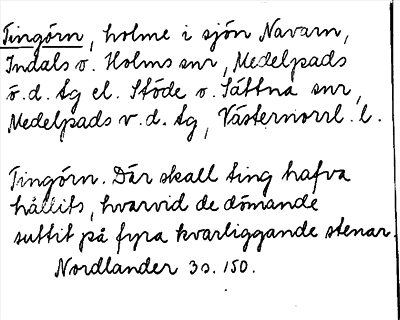 Tingörn, holme i sjön Navarn,
Indals o. Holms snr, Medelpads
ö. d. tg el. Stöde o. Sättna snr,
Medelpads v. d. tg, Västernorrl. l.
Tingörn. Där skall ting hafva
hållits, hvarvid de dömande
suttit på fyra kvarliggande stenar.
Nordlander 3 s. 150.